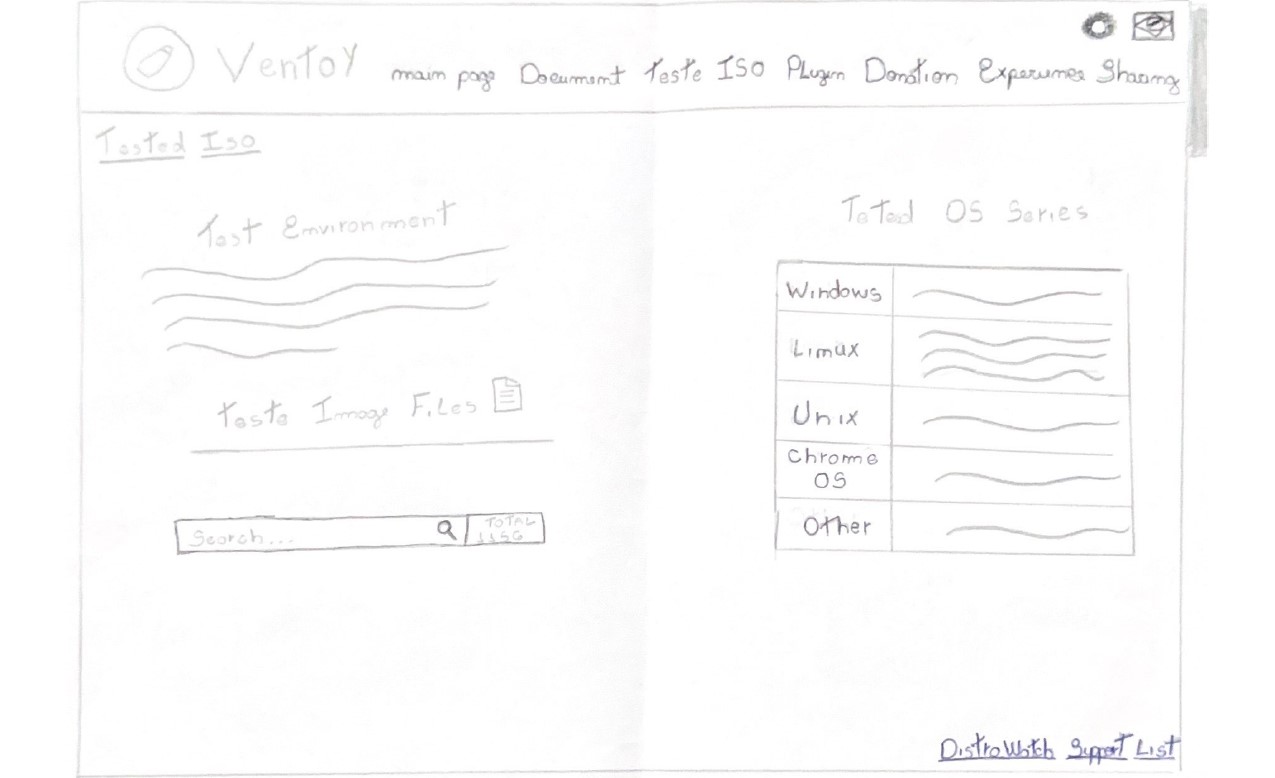 Ventoy
main page Document Teste ISO Plugin Donation Experience Sharing
Tested Iso
Test Environment
Teste Image Files
Search...
TOTAL
1156
Teted OS Series
Windows
Linux
Unix
Chrome
OS
Other
DistroWatch Support List